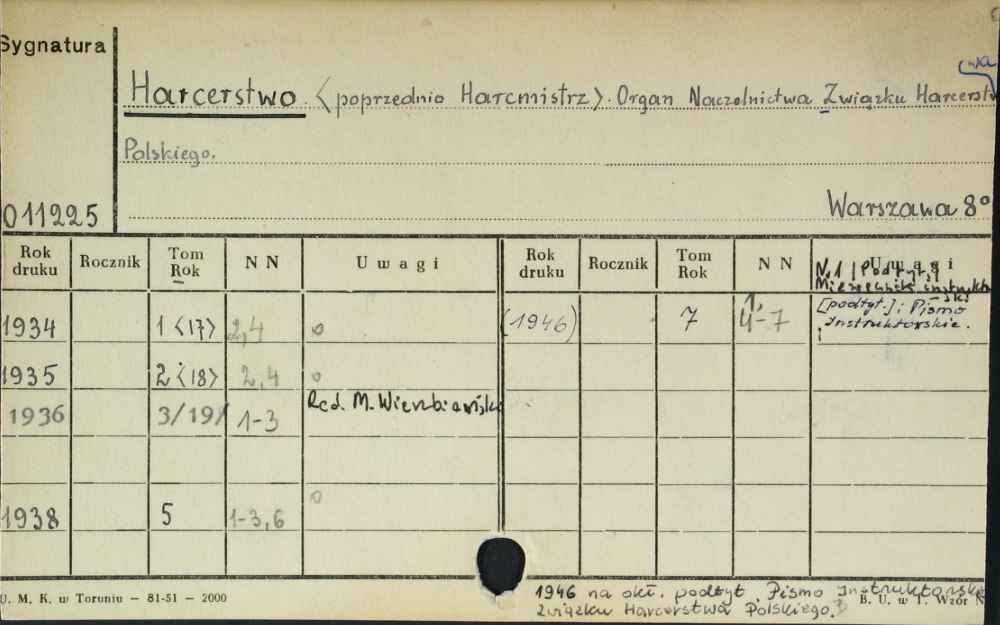 Sygnatura
wa
Harcerstwo. <poprzednio Harcmistrz>. Organ Naczelnictwa Związku Harcerst
Polskiego.
011225
Warszawa 8°
Rok druku Rocznik Tom Rok N N Uwagi Rok druku Rocznik Tom Rok N N Uwagi
N.1 [Podtyt.]
Miesięcznik instrukto
-ski
1934 1 <17> 2,4 o (1946) 7 1, 4-7 [podtyt.]: Pismo
Instruktorskie.
1935 2 <18> 2,4 o
1936 3/19/ 1-3 Red. M. Wierzbiański
1938 5 1-3,6 o
U. M. K. w Toruniu — 81-51 — 2000
1946 na okł. podtyt. Pismo Instruktorskie
Związku Harcerstwa Polskiego.
B. U. w T. Wzór N